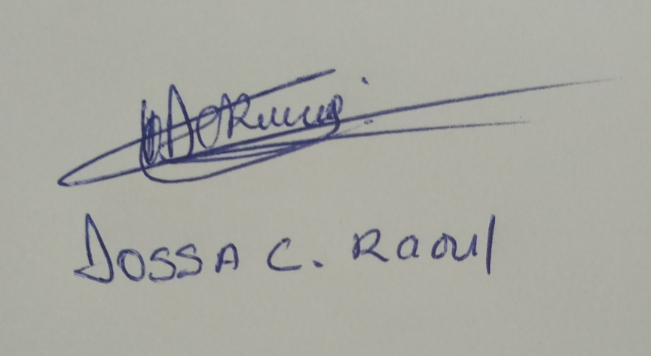 DOSSA C. Raoul